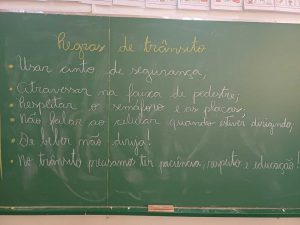 Regras de trânsito
• Usar cinto de segurança;
• Atravessar na faixa de pedestre;
• Respeitar o semáforo e as placas;
• Não falar ao celular quando estiver dirigindo;
• Se beber não dirija!
• No trânsito precisamos ter paciência, respeito e educação!